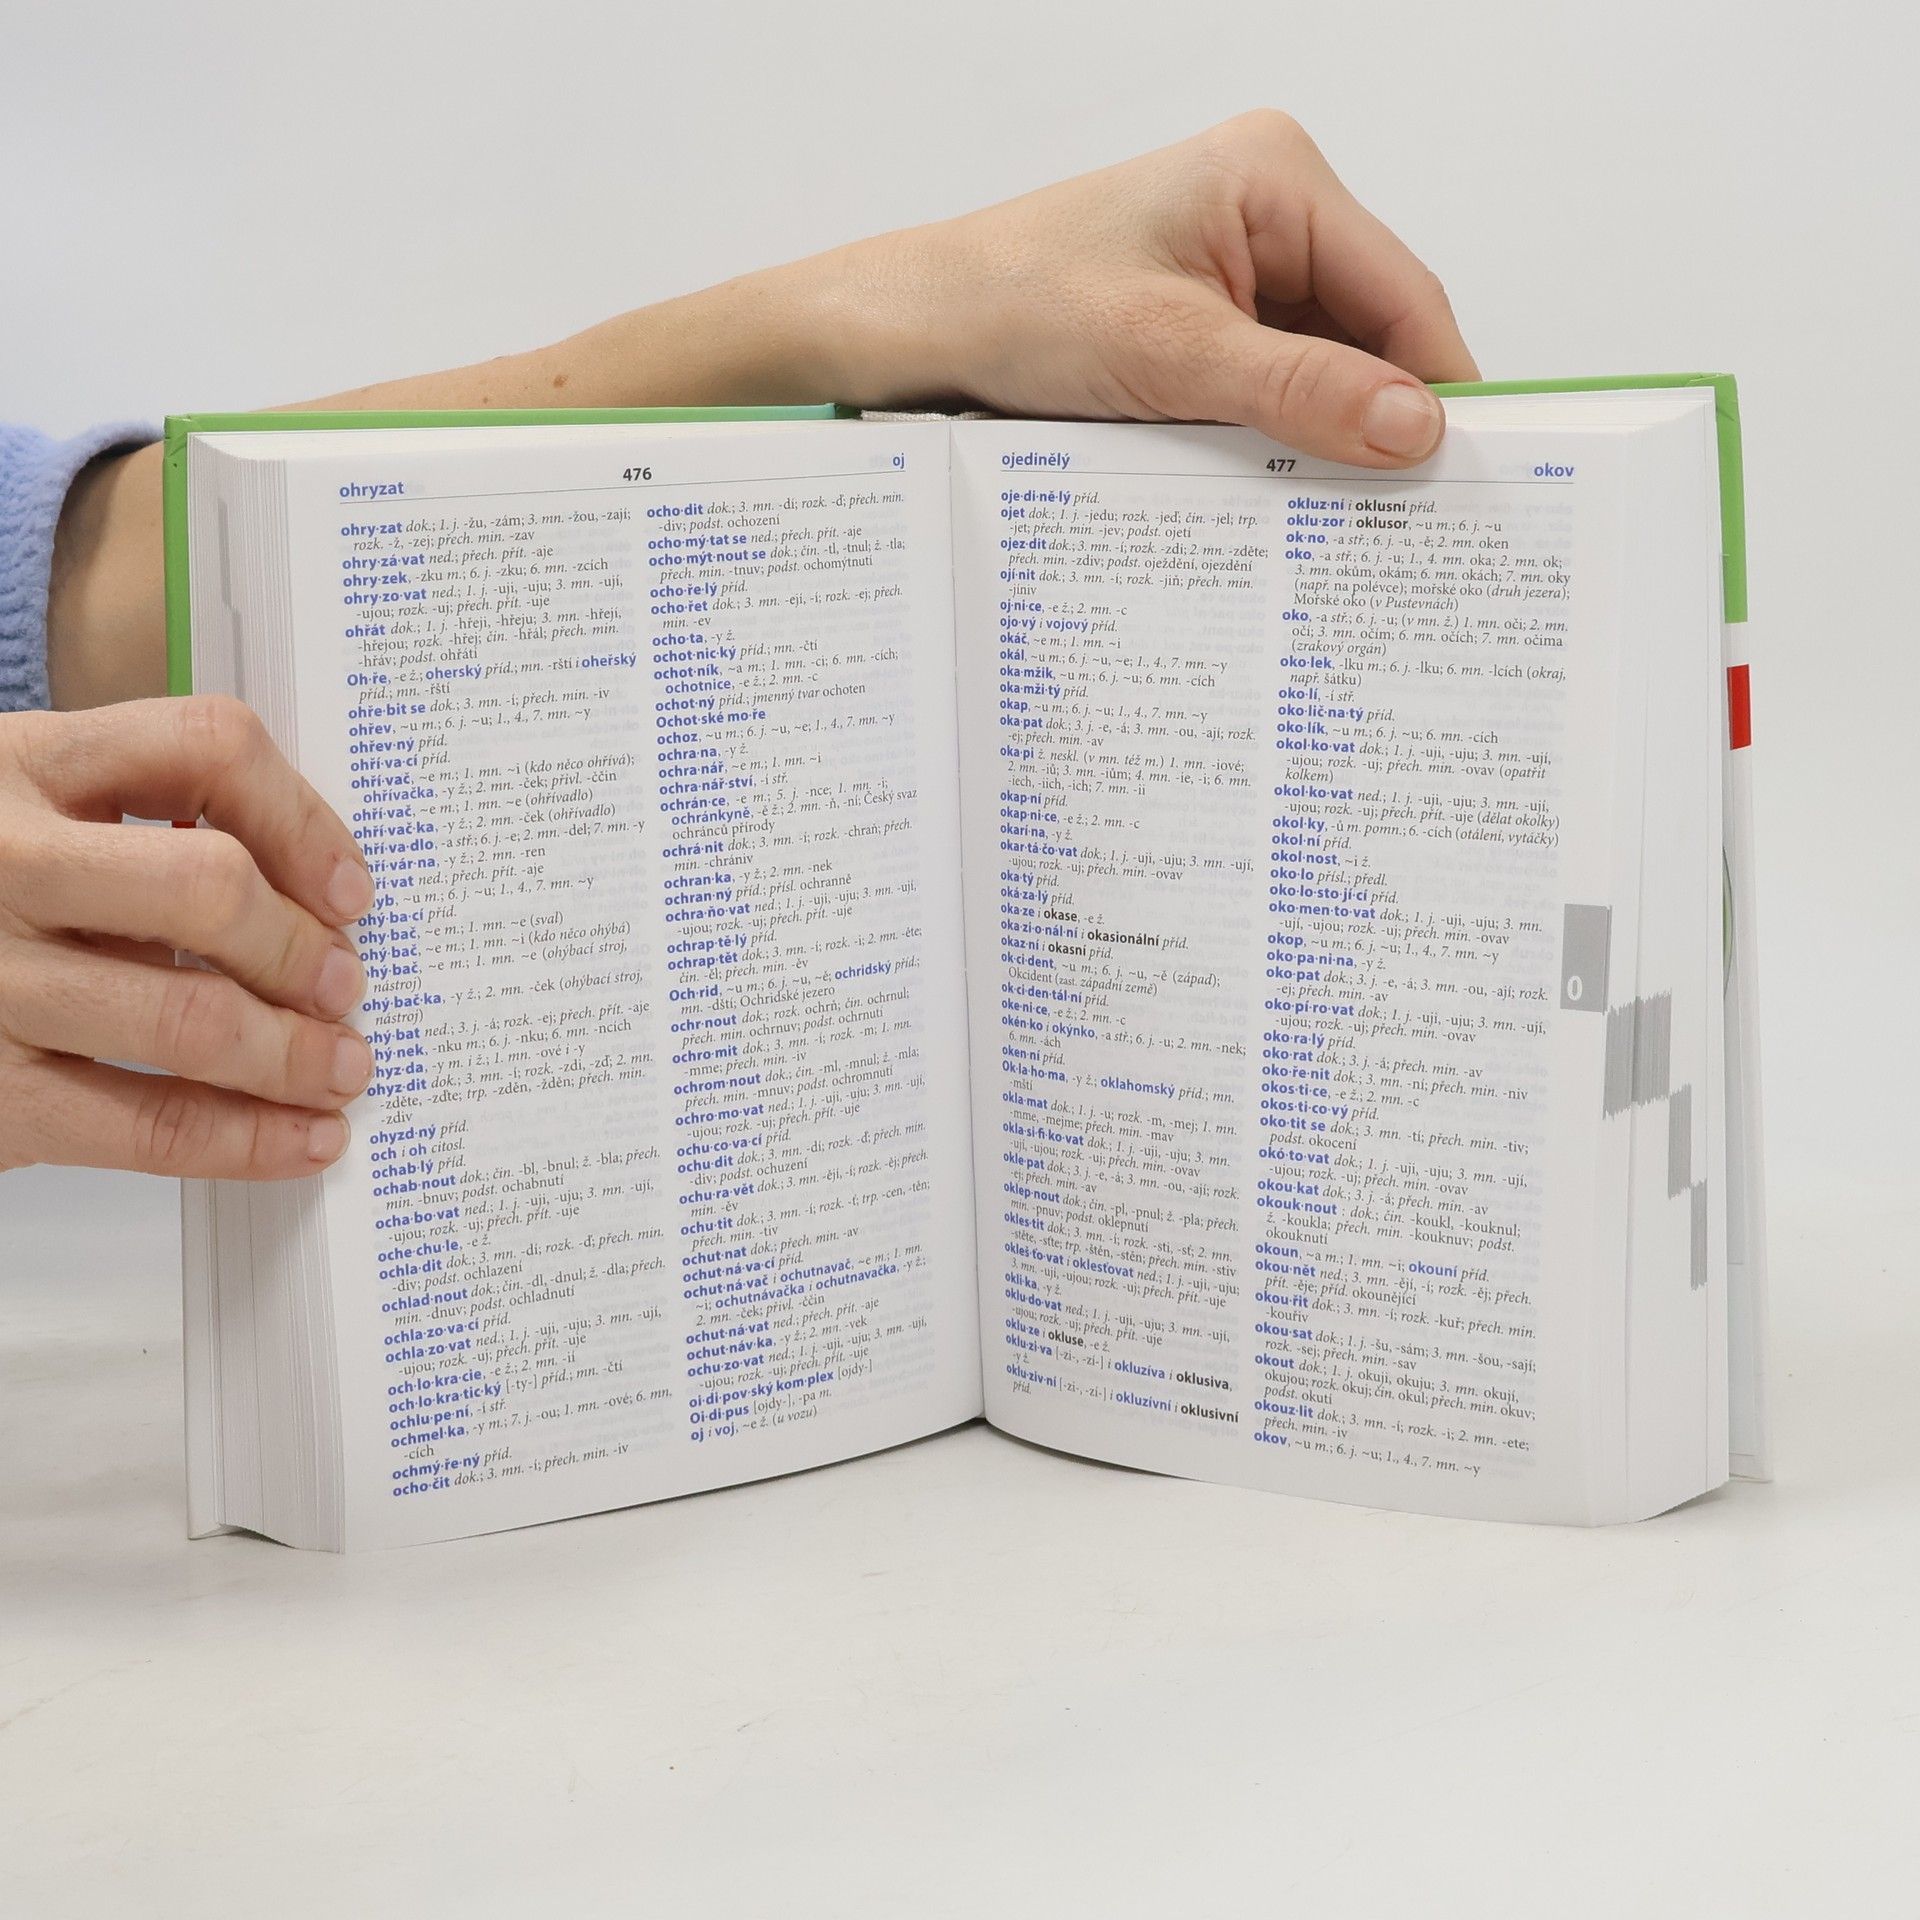 ohryzat
476
oj
ohry·zat dok.; 1. j. -žu, -zám; 3. mn. -žou, -zají;
rozk. -ž, -zej; přech. min. -zav
ohry·zá·vat ned.; přech. přít. -aje
ohry·zek, -zku m.; 6. j. -zku; 6. mn. -zcích
ohry·zo·vat ned.; 1. j. -uji, -uju; 3. mn. -ují,
-ujou; rozk. -uj; přech. přít. -uje
ohřát dok.; 1. j. -hřeji, -hřeju; 3. mn. -hřejí,
-hřejou; rozk. -hřej; čin. -hřál; přech. min.
-hřáv; podst. ohřátí
Oh·ře, -e ž.; oherský příd.; mn. -rští i oheřský
příd.; mn. -řští
ohře·bit se dok.; 3. mn. -í; přech. min. -iv
ohřev, ~u m.; 6. j. ~u; 1., 4., 7. mn. ~y
ohřev·ný příd.
ohří·va·cí příd.
ohří·vač, ~e m.; 1. mn. ~i (kdo něco ohřívá);
ohřívačka, -y ž.; 2. mn. -ček; přivl. -ččin
ohří·vač, ~e m.; 1. mn. ~e (ohřívadlo)
ohří·vač·ka, -y ž.; 2. mn. -ček (ohřívadlo)
hří·va·dlo, -a stř.; 6. j. -e; 2. mn. -del; 7. mn. -y
hří·vár·na, -y ž.; 2. mn. -ren
ří·vat ned.; přech. přít. -aje
yb, ~u m.; 6. j. ~u; 1., 4., 7. mn. ~y
ohý·ba·cí příd.
ohy·bač, ~e m.; 1. mn. ~e (sval)
ohý·bač, ~e m.; 1. mn. ~i (kdo něco ohýbá)
ohý·bač, ~e m.; 1. mn. ~e (ohýbací stroj,
nástroj)
ohý·bač·ka, -y ž.; 2. mn. -ček (ohýbací stroj,
nástroj)
ohý·bat ned.; 3. j. -á; rozk. -ej; přech. přít. -aje
hý·nek, -nku m.; 6. j. -nku; 6. mn. -ncích
hyz·da, -y m. i ž.; 1. mn. -ové i -y
ohyz·dit dok.; 3. mn. -í; rozk. -zdi, -zď; 2. mn.
-zděte, -zďte; trp. -zděn, -žděn; přech. min.
-zdiv
ohyzd·ný příd.
och i oh citosl.
ochab·lý příd.
ochab·nout dok.; čin. -bl, -bnul; ž. -bla; přech.
min. -bnuv; podst. ochabnutí
ocha·bo·vat ned.; 1. j. -uji, -uju; 3. mn. -ují,
-ujou; rozk. -uj; přech. přít. -uje
oche·chu·le, -e ž.
ochla·dit dok.; 3. mn. -dí; rozk. -ď; přech. min.
-div; podst. ochlazení
ochlad·nout dok.; čin. -dl, -dnul; ž. -dla; přech.
min. -dnuv; podst. ochladnutí
ochla·zo·va·cí příd.
ochla·zo·vat ned.; 1. j. -uji, -uju; 3. mn. -ují,
-ujou; rozk. -uj; přech. přít. -uje
och·lo·kra·cie, -e ž.; 2. mn. -ií
och·lo·kra·tic·ký [-ty-] příd.; mn. -čtí
ochlu·pe·ní, -í stř.
ochmel·ka, -y m.; 7. j. -ou; 1. mn. -ové; 6. mn.
-cích
ochmý·ře·ný příd.
ocho·čit dok.; 3. mn. -í; přech. min. -iv
ocho·dit dok.; 3. mn. -dí; rozk. -ď; přech. min.
-div; podst. ochození
ocho·mý·tat se ned.; přech. přít. -aje
ocho·mýt·nout se dok.; čin. -tl, -tnul; ž. -tla;
přech. min. -tnuv; podst. ochomýtnutí
ocho·ře·lý příd.
ocho·řet dok.; 3. mn. -ejí, -í; rozk. -ej; přech.
min. -ev
ocho·ta, -y ž.
ochot·nic·ký příd.; mn. -čtí
ochot·ník, ~a m.; 1. mn. -ci; 6. mn. -cích;
ochotnice, -e ž.; 2. mn. -c
ochot·ný příd.; jmenný tvar ochoten
Ochot·ské mo·ře
ochoz, ~u m.; 6. j. ~u, ~e; 1., 4., 7. mn. ~y
ochra·na, -y ž.
ochra·nář, ~e m.; 1. mn. ~i
ochra·nář·ství, -í stř.
ochrán·ce, -e m.; 5. j. -nce; 1. mn. -i;
ochránkyně, -ě ž.; 2. mn. -ň, -ní; Český svaz
ochránců přírody
ochrá·nit dok.; 3. mn. -í; rozk. -chraň; přech.
min. -chrániv
ochran·ka, -y ž.; 2. mn. -nek
ochran·ný příd.; přísl. ochranně
ochra·ňo·vat ned.; 1. j. -uji, -uju; 3. mn. -ují,
-ujou; rozk. -uj; přech. přít. -uje
ochrap·tě·lý příd.
ochrap·tět dok.; 3. mn. -í; rozk. -i; 2. mn. -ěte;
čin. -ěl; přech. min. -ěv
Och·rid, ~u m.; 6. j. ~u, ~ě; ochridský příd.;
mn. -dští; Ochridské jezero
ochr·nout dok.; rozk. ochrň; čin. ochrnul;
přech. min. ochrnuv; podst. ochrnutí
ochro·mit dok.; 3. mn. -í; rozk. -m; 1. mn.
-mme; přech. min. -iv
ochrom·nout dok.; čin. -ml, -mnul; ž. -mla;
přech. min. -mnuv; podst. ochromnutí
ochro·mo·vat ned.; 1. j. -uji, -uju; 3. mn. -ují,
-ujou; rozk. -uj; přech. přít. -uje
ochu·co·va·cí příd.
ochu·dit dok.; 3. mn. -dí; rozk. -ď; přech. min.
-div; podst. ochuzení
ochu·ra·vět dok.; 3. mn. -ějí, -í; rozk. -ěj; přech.
min. -ěv
ochu·tit dok.; 3. mn. -í; rozk. -ť; trp. -cen, -těn;
přech. min. -tiv
ochut·nat dok.; přech. min. -av
ochut·ná·va·cí příd.
ochut·ná·vač i ochutnavač, ~e m.; 1. mn.
~i; ochutnávačka i ochutnavačka, -y ž.;
2. mn. -ček; přivl. -ččin
ochut·ná·vat ned.; přech. přít. -aje
ochut·náv·ka, -y ž.; 2. mn. -vek
ochu·zo·vat ned.; 1. j. -uji, -uju; 3. mn. -ují,
-ujou; rozk. -uj; přech. přít. -uje
oi·di·pov·ský kom·plex [ojdy-]
Oi·di·pus [ojdy-], -pa m.
oj i voj, ~e ž. (u vozu)
ojedinělý
477
okov
oje·di·ně·lý příd.
ojet dok.; 1. j. -jedu; rozk. -jeď; čin. -jel; trp.
-jet; přech. min. -jev; podst. ojetí
ojez·dit dok.; 3. mn. -í; rozk. -zdi; 2. mn. -zděte;
přech. min. -zdiv; podst. oježdění, ojezdění
ojí·nit dok.; 3. mn. -í; rozk. -jiň; přech. min.
-jíniv
oj·ni·ce, -e ž.; 2. mn. -c
ojo·vý i vojový příd.
okáč, ~e m.; 1. mn. ~i
okál, ~u m.; 6. j. ~u, ~e; 1., 4., 7. mn. ~y
oka·mžik, ~u m.; 6. j. ~u; 6. mn. -cích
oka·mži·tý příd.
okap, ~u m.; 6. j. ~u; 1., 4., 7. mn. ~y
oka·pat dok.; 3. j. -e, -á; 3. mn. -ou, -ají; rozk.
-ej; přech. min. -av
oka·pi ž. neskl. (v mn. též m.) 1. mn. -iové;
2. mn. -iů; 3. mn. -iům; 4. mn. -ie, -i; 6. mn.
-iech, -iích, -ich; 7. mn. -ii
okap·ní příd.
okap·ni·ce, -e ž.; 2. mn. -c
okarí·na, -y ž.
okar·tá·čo·vat dok.; 1. j. -uji, -uju; 3. mn. -ují,
-ujou; rozk. -uj; přech. min. -ovav
oka·tý příd.
oká·za·lý příd.
oka·ze i okase, -e ž.
oka·zi·o·nál·ní i okasionální příd.
okaz·ní i okasní příd.
ok·ci·dent, ~u m.; 6. j. ~u, ~ě (západ);
Okcident (zast. západní země)
ok·ci·den·tál·ní příd.
oke·ni·ce, -e ž.; 2. mn. -c
okén·ko i okýnko, -a stř.; 6. j. -u; 2. mn. -nek;
6. mn. -ách
oken·ní příd.
Ok·la·ho·ma, -y ž.; oklahomský příd.; mn.
-mští
okla·mat dok.; 1. j. -u; rozk. -m, -mej; 1. mn.
-mme, -mejme; přech. min. -mav
okla·si·fi·ko·vat dok.; 1. j. -uji, -uju; 3. mn.
-ují, -ujou; rozk. -uj; přech. min. -ovav
okle·pat dok.; 3. j. -e, -á; 3. mn. -ou, -ají; rozk.
-ej; přech. min. -av
oklep·nout dok.; čin. -pl, -pnul; ž. -pla; přech.
min. -pnuv; podst. oklepnutí
okles·tit dok.; 3. mn. -í; rozk. -sti, -sť; 2. mn.
-stěte, -sťte; trp. -štěn, -stěn; přech. min. -stiv
okleš·ťo·vat i oklesťovat ned.; 1. j. -uji, -uju;
3. mn. -ují, -ujou; rozk. -uj; přech. přít. -uje
okli·ka, -y ž.
oklu·do·vat ned.; 1. j. -uji, -uju; 3. mn. -ují,
-ujou; rozk. -uj; přech. přít. -uje
oklu·ze i okluse, -e ž.
oklu·zi·va [-zi-, -zí-] i okluzíva i oklusiva,
-y ž.
oklu·ziv·ní [-zi-, -zí-] i okluzívní i oklusivní
příd.
okluz·ní i oklusní příd.
oklu·zor i oklusor, ~u m.; 6. j. ~u
ok·no, -a stř.; 6. j. -u, -ě; 2. mn. oken
oko, -a stř.; 6. j. -u; 1., 4. mn. oka; 2. mn. ok;
3. mn. okům, okám; 6. mn. okách; 7. mn. oky
(např. na polévce); mořské oko (druh jezera);
Mořské oko (v Pustevnách)
oko, -a stř.; 6. j. -u; (v mn. ž.) 1. mn. oči; 2. mn.
očí; 3. mn. očím; 6. mn. očích; 7. mn. očima
(zrakový orgán)
oko·lek, -lku m.; 6. j. -lku; 6. mn. -lcích (okraj,
např. šátku)
oko·lí, -í stř.
oko·lič·na·tý příd.
oko·lík, ~u m.; 6. j. ~u; 6. mn. -cích
okol·ko·vat dok.; 1. j. -uji, -uju; 3. mn. -ují,
-ujou; rozk. -uj; přech. min. -ovav (opatřit
kolkem)
okol·ko·vat ned.; 1. j. -uji, -uju; 3. mn. -ují,
-ujou; rozk. -uj; přech. přít. -uje (dělat okolky)
okol·ky, -ů m. pomn.; 6. -cích (otálení, vytáčky)
okol·ní příd.
okol·nost, ~i ž.
oko·lo přísl.; předl.
oko·lo·sto·jí·cí příd.
oko·men·to·vat dok.; 1. j. -uji, -uju; 3. mn.
-ují, -ujou; rozk. -uj; přech. min. -ovav
okop, ~u m.; 6. j. ~u; 1., 4., 7. mn. ~y
oko·pa·ni·na, -y ž.
oko·pat dok.; 3. j. -e, -á; 3. mn. -ou, -ají; rozk.
-ej; přech. min. -av
oko·pí·ro·vat dok.; 1. j. -uji, -uju; 3. mn. -ují,
-ujou; rozk. -uj; přech. min. -ovav
oko·ra·lý příd.
oko·rat dok.; 3. j. -á; přech. min. -av
oko·ře·nit dok.; 3. mn. -ní; přech. min. -niv
okos·ti·ce, -e ž.; 2. mn. -c
okos·ti·co·vý příd.
oko·tit se dok.; 3. mn. -tí; přech. min. -tiv;
podst. okocení
okó·to·vat dok.; 1. j. -uji, -uju; 3. mn. -ují,
-ujou; rozk. -uj; přech. min. -ovav
okou·kat dok.; 3. j. -á; přech. min. -av
okouk·nout : dok.; čin. -koukl, -kouknul;
ž. -koukla; přech. min. -kouknuv; podst.
okouknutí
okoun, ~a m.; 1. mn. ~i; okouní příd.
okou·nět ned.; 3. mn. -ějí, -í; rozk. -ěj; přech.
přít. -ěje; příd. okounějící
okou·řit dok.; 3. mn. -í; rozk. -kuř; přech. min.
-kouřiv
okou·sat dok.; 1. j. -šu, -sám; 3. mn. -šou, -sají;
rozk. -sej; přech. min. -sav
okout dok.; 1. j. okuji, okuju; 3. mn. okují,
okujou; rozk. okuj; čin. okul; přech. min. okuv;
podst. okutí
okouz·lit dok.; 3. mn. -í; rozk. -i; 2. mn. -ete;
přech. min. -iv
okov, ~u m.; 6. j. ~u; 1., 4., 7. mn. ~y
O